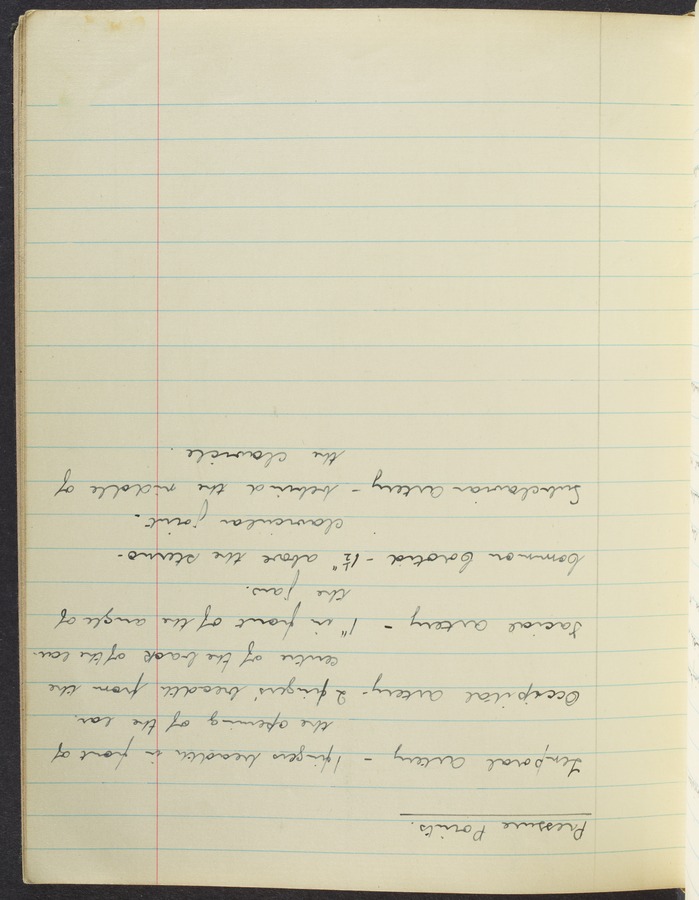 Pressure Points.
Temporal artery - 1 fingers breadth in front of
the opening of the ear.
Occipital artery - 2 fingers' breadth from the
centre of the back of the ear.
Facial artery - 1" in front of the angle of
the jaw.
Common Carotid - 1½" above the sterno-
clavicular joint.
Subclavian artery - behind the middle of
the clavicle.